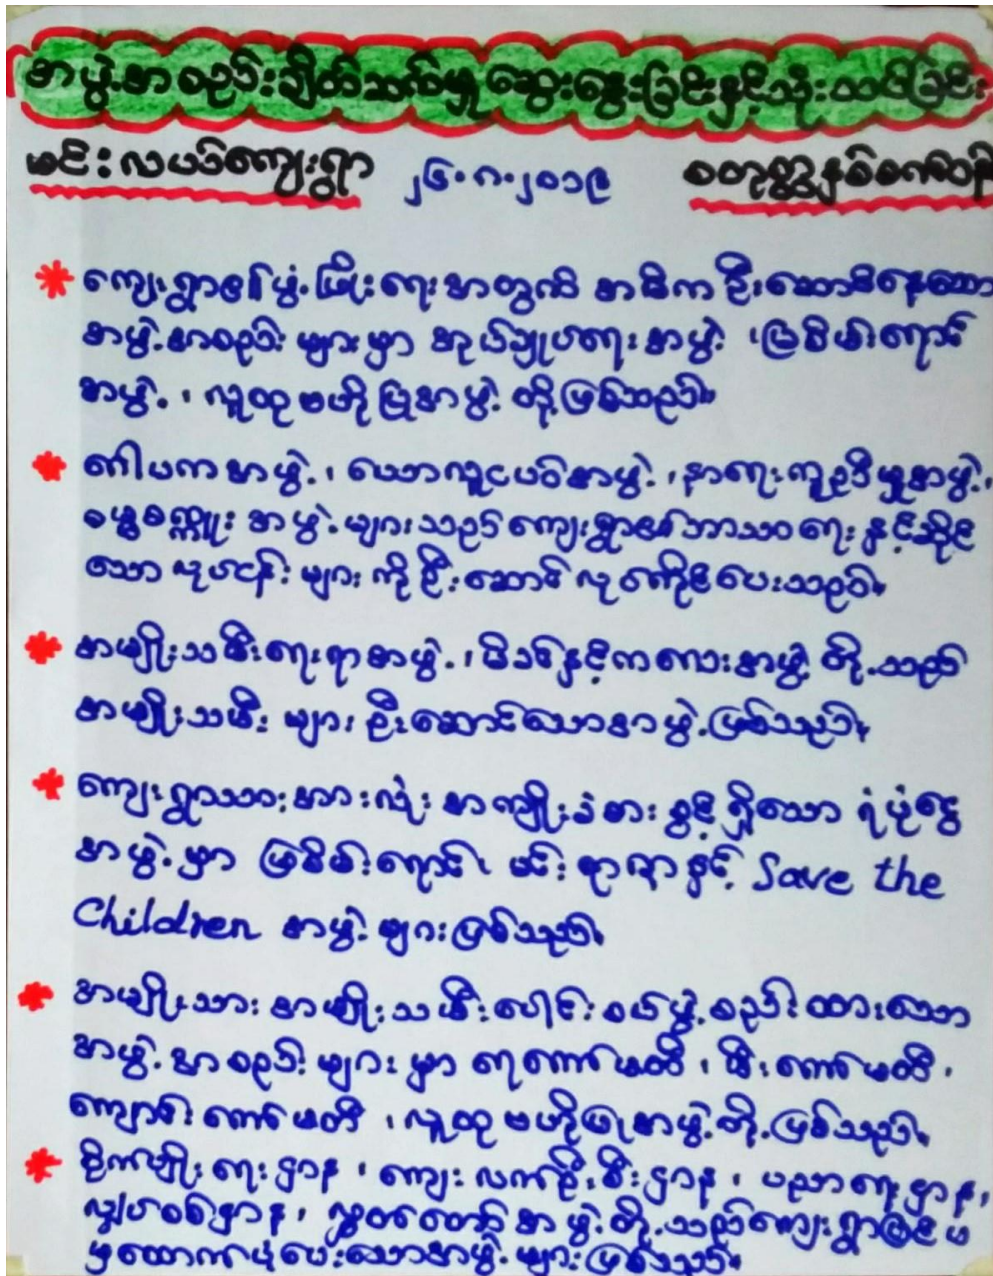 အဖွဲ့အစည်းချိတ်ဆက်မှု ဆွေးနွေးခြင်းနှင့်သုံးသပ်ခြင်း
မင်းလယ်ကျေးရွာ ၂၆.၈.၂၀၁၉ စတုတ္ထနှစ်စက်ဝန်
ကျေးရွာဖွံ့ဖြိုးရေးအတွက် အဓိကဦးဆောင်နေသော
အဖွဲ့အစည်းများမှာ အုပ်ချုပ်ရေးအဖွဲ့၊ မြစိမ်းရောင်
အဖွဲ့၊ လူထုဗဟိုပြုအဖွဲ့တို့ဖြစ်သည်။
ဂေါပကအဖွဲ့၊ ယောလူငယ်အဖွဲ့၊ နာရေးကူညီမှုအဖွဲ့၊
ဓမ္မစကြာ အဖွဲ့များသည် ကျေးရွာ၏ဘာသာရေးနှင့်ဆိုင်
သော လုပ်ငန်းများကို ဦးဆောင်လုပ်ကိုင်ပေးသည်။
အမျိုးသမီးရေးရာအဖွဲ့၊ မိခင်နှင့်ကလေးအဖွဲ့တို့သည်
အမျိုးသမီးများ ဦးဆောင်သောအဖွဲ့ဖြစ်သည်။
ကျေးရွာသားအားလုံး အကျိုးခံစားခွင့်ရှိသော ရံပုံငွေ
အဖွဲ့မှာ မြစိမ်းရောင်၊ မင်း နှင့် Save the
Children အဖွဲ့များဖြစ်သည်။
အမျိုးသားအမျိုးသမီးပေါင်းစပ်ဖွဲ့စည်းထားသော
အဖွဲ့အစည်းများမှာ ရေကော်မတီ၊ မီးကော်မတီ၊
ကျောင်းကော်မတီ၊ လူထုဗဟိုပြုအဖွဲ့တို့ဖြစ်သည်။
စိုက်ပျိုးရေးဌာန၊ ကျေးလက်ဦးစီးဌာန၊ ပညာရေးဌာန၊
လျှပ်စစ်ဌာန၊ လွှတ်တော်အဖွဲ့တို့သည်ကျေးရွာပြင်ပ
မှထောက်ပံ့ပေးသောအဖွဲ့များဖြစ်သည်။